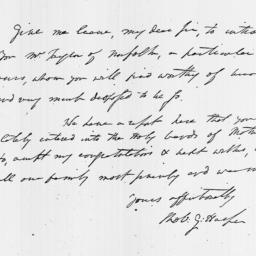 Give me leave, my dear Sir, to introd
you Mr. Taylor of Norfolk, a particular
ours, whom you will find worthy of
and very much disposed to be so.
We have a report here that you
lately entered into the Holy bands of
accept my congratulations & best wishes,
all our family most
yours affectionately
Rob. G. Harper